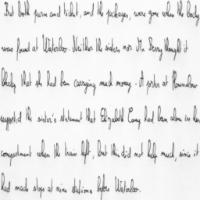 But both purse and ticket, and the packages, were gone when the body
was found at Waterloo. Neither the sisters nor Mr Berry thought it
likely that she had been carrying much money. A porter at Hounslow
supported the sister's statement that Elizabeth Camp had been alone in her
compartment when the train left, but this did not help much, since it
had made stops at nine stations before Waterloo.